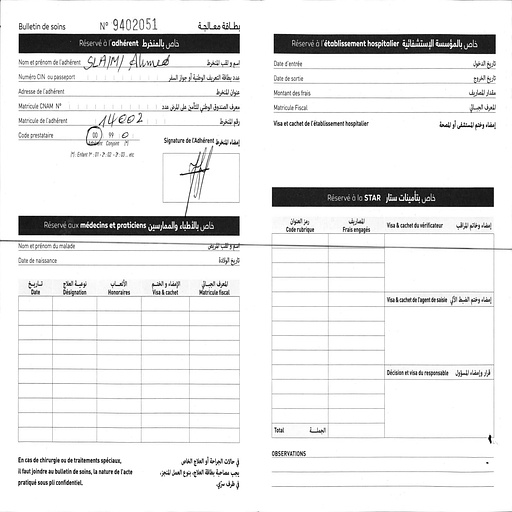 Bulletin de soins N° 9402051 بطاقة معالجة
Réservé à l'adhérent خاص بالمنخرط
Nom et prénom de l'adhérent SLAIMI Ahmed اسم و لقب المنخرط
Numéro CIN ou passeport عدد بطاقة التعريف الوطنية أو جواز السفر
Adresse de l'adhérent عنوان المنخرط
Matricule CNAM N° معرف الصندوق الوطني للتأمين على المرض عدد
Matricule de l'adhérent 14602 رقم المنخرط
Code prestataire 00 99 0
Adhérent Conjoint (*)
(*). Enfant N° : 01 - 02 - 03 ... etc
Signature de l'Adhérent إمضاء المنخرط
Réservé aux médecins et praticiens خاص بالأطباء والممارسين
Nom et prénom du malade اسم و لقب المريض
Date de naissance تاريخ الولادة
تاريخ نوعية العلاج الأتعاب الإمضاء و الختم المعرف الجبائي
Date Désignation Honoraires Visa & cachet Matricule fiscal
En cas de chirurgie ou de traitements spéciaux,
il faut joindre au bulletin de soins, la nature de l'acte
pratiqué sous pli confidentiel.
في حالات الجراحة أو العلاج الخاص
يجب مصاحبة بطاقة العلاج، بنوع العمل المنجز،
في ظرف سري.
Réservé à l'établissement hospitalier خاص بالمؤسسة الإستشفائية
Date d'entrée تاريخ الدخول
Date de sortie تاريخ الخروج
Montant des frais مقدار المصاريف
Matricule Fiscal المعرف الجبائي
Visa et cachet de l'établissement hospitalier إمضاء وختم المستشفى أو المصحة
Réservé à la STAR خاص بتأمينات ستار
رمز العنوان المصاريف
Code rubrique Frais engagés
Visa & cachet du vérificateur إمضاء وخاتم المراقب
Visa & cachet de l'agent de saisie إمضاء وختم الضبط الآلي
Décision et visa du responsable قرار وإمضاء المسؤول
Total الجملة
OBSERVATIONS